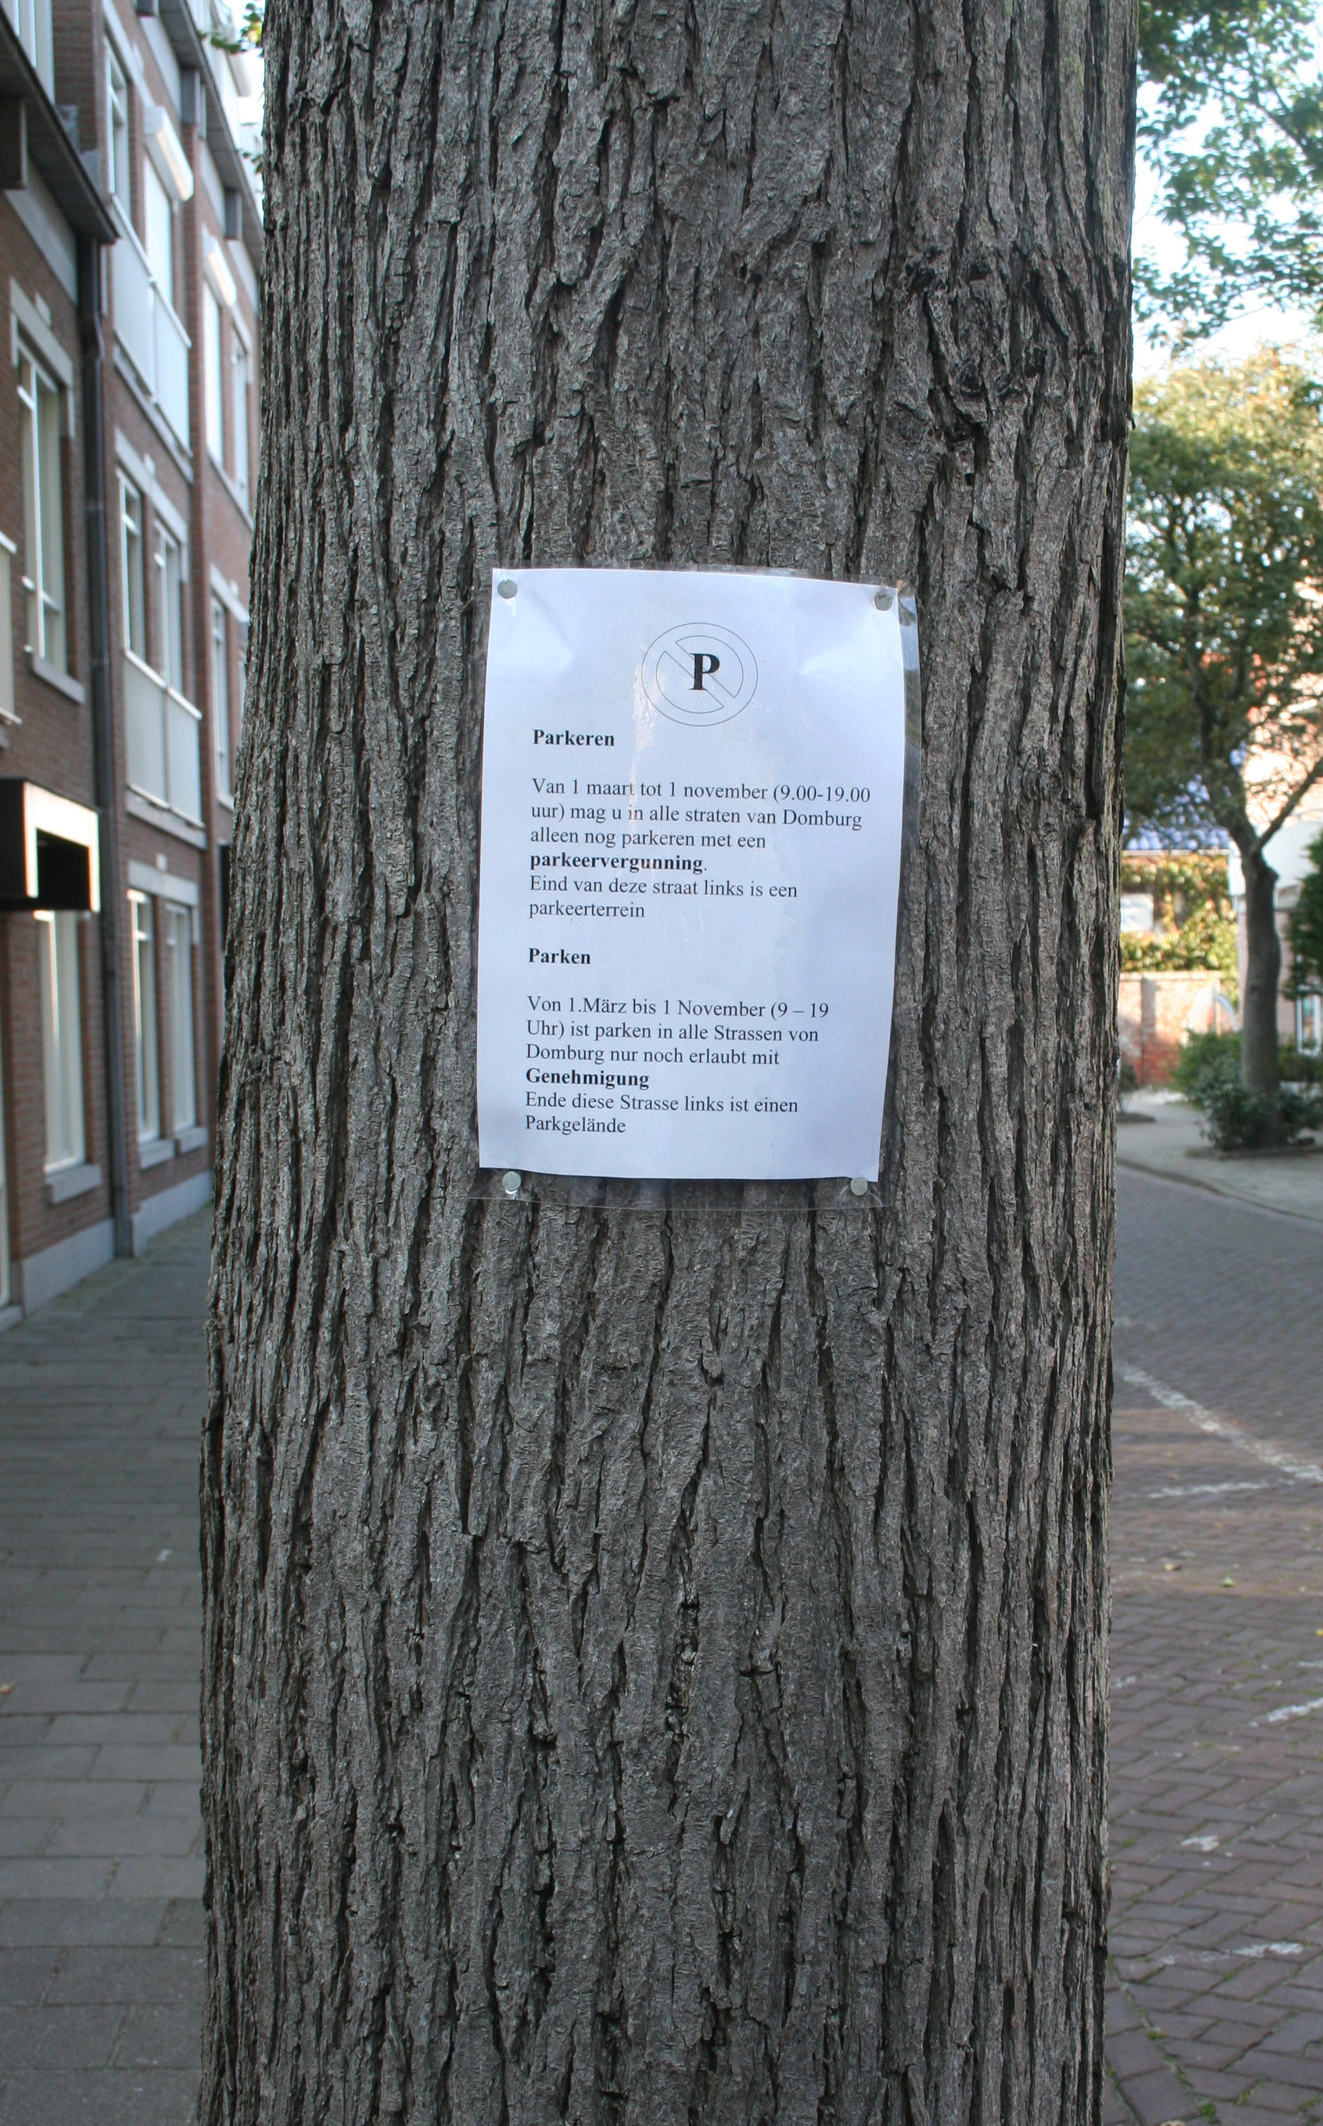 P
Parkeren
Van 1 maart tot 1 november (9.00-19.00
uur) mag u in alle straten van Domburg
alleen nog parkeren met een
parkeervergunning.
Eind van deze straat links is een
parkeerterrein
Parken
Von 1.März bis 1 November (9 – 19
Uhr) ist parken in alle Strassen von
Domburg nur noch erlaubt mit
Genehmigung
Ende diese Strasse links ist einen
Parkgelände